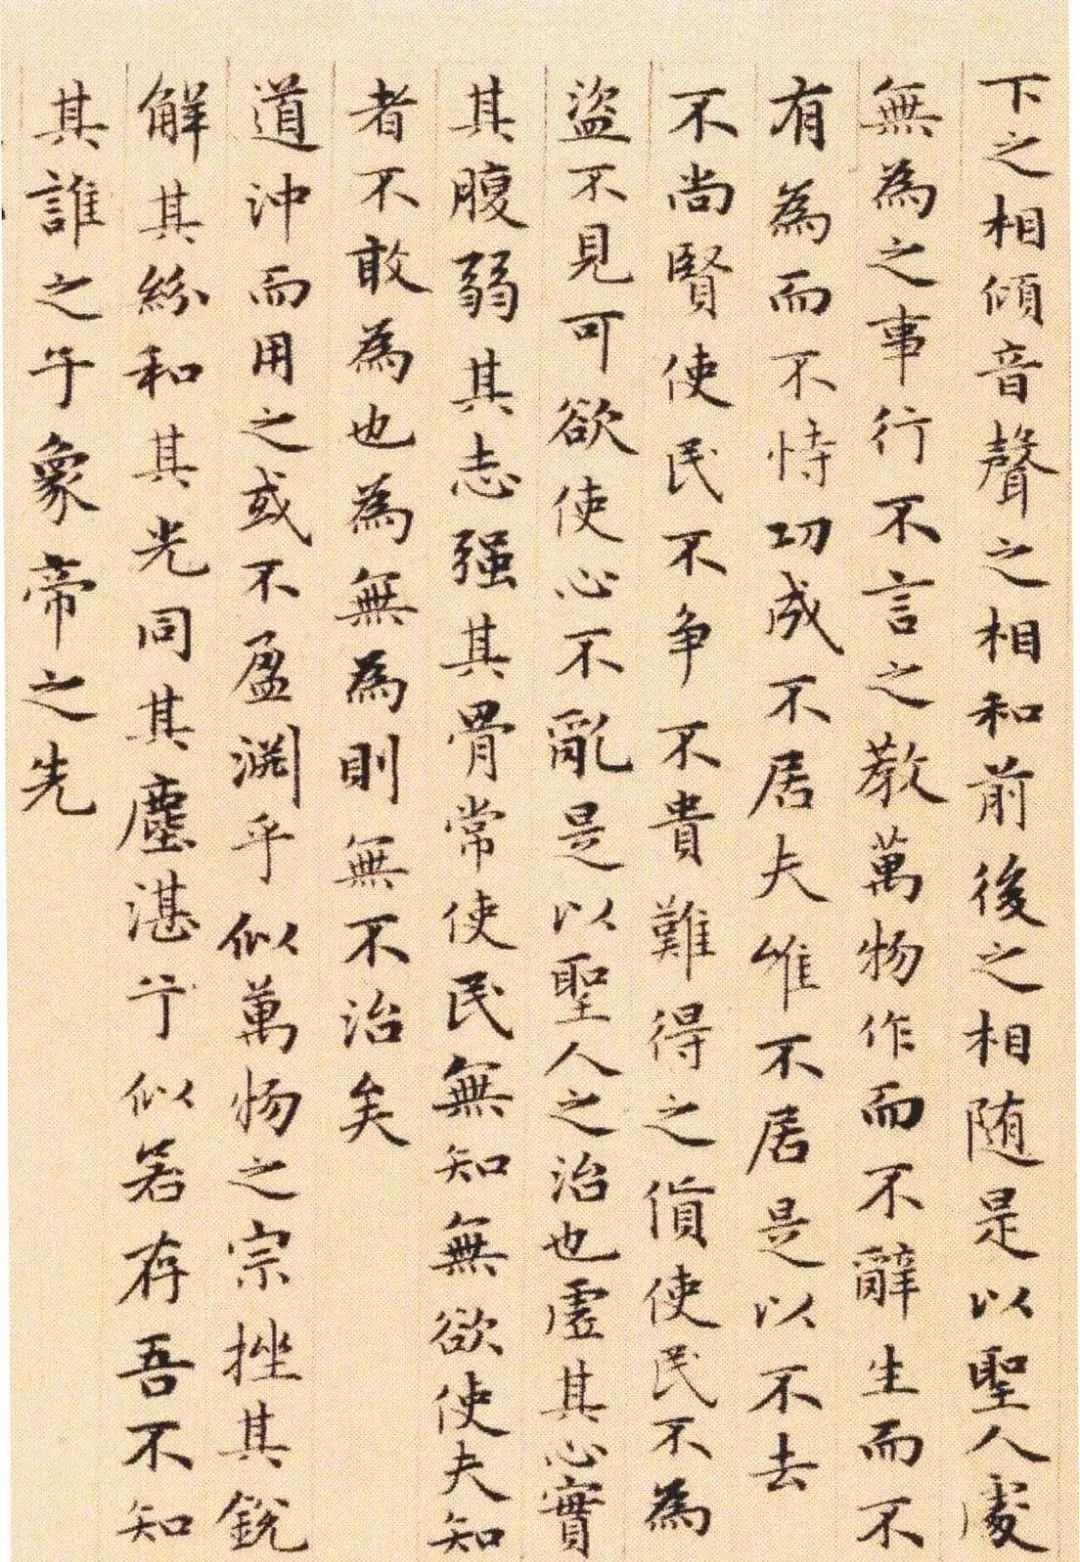 下之相傾音聲之相和前後之相随是以聖人處
無為之事行不言之教萬物作而不辭生而不
有為而不恃功成不居夫惟不居是以不去
不尚賢使民不争不貴難得之貨使民不為
盜不見可欲使心不亂是以聖人之治也虛其心實
其腹弱其志强其骨常使民無知無欲使夫知
者不敢為也為無為則無不治矣
道沖而用之或不盈淵乎似萬物之宗挫其銳
解其紛和其光同其塵湛兮似若存吾不知
其誰之子象帝之先